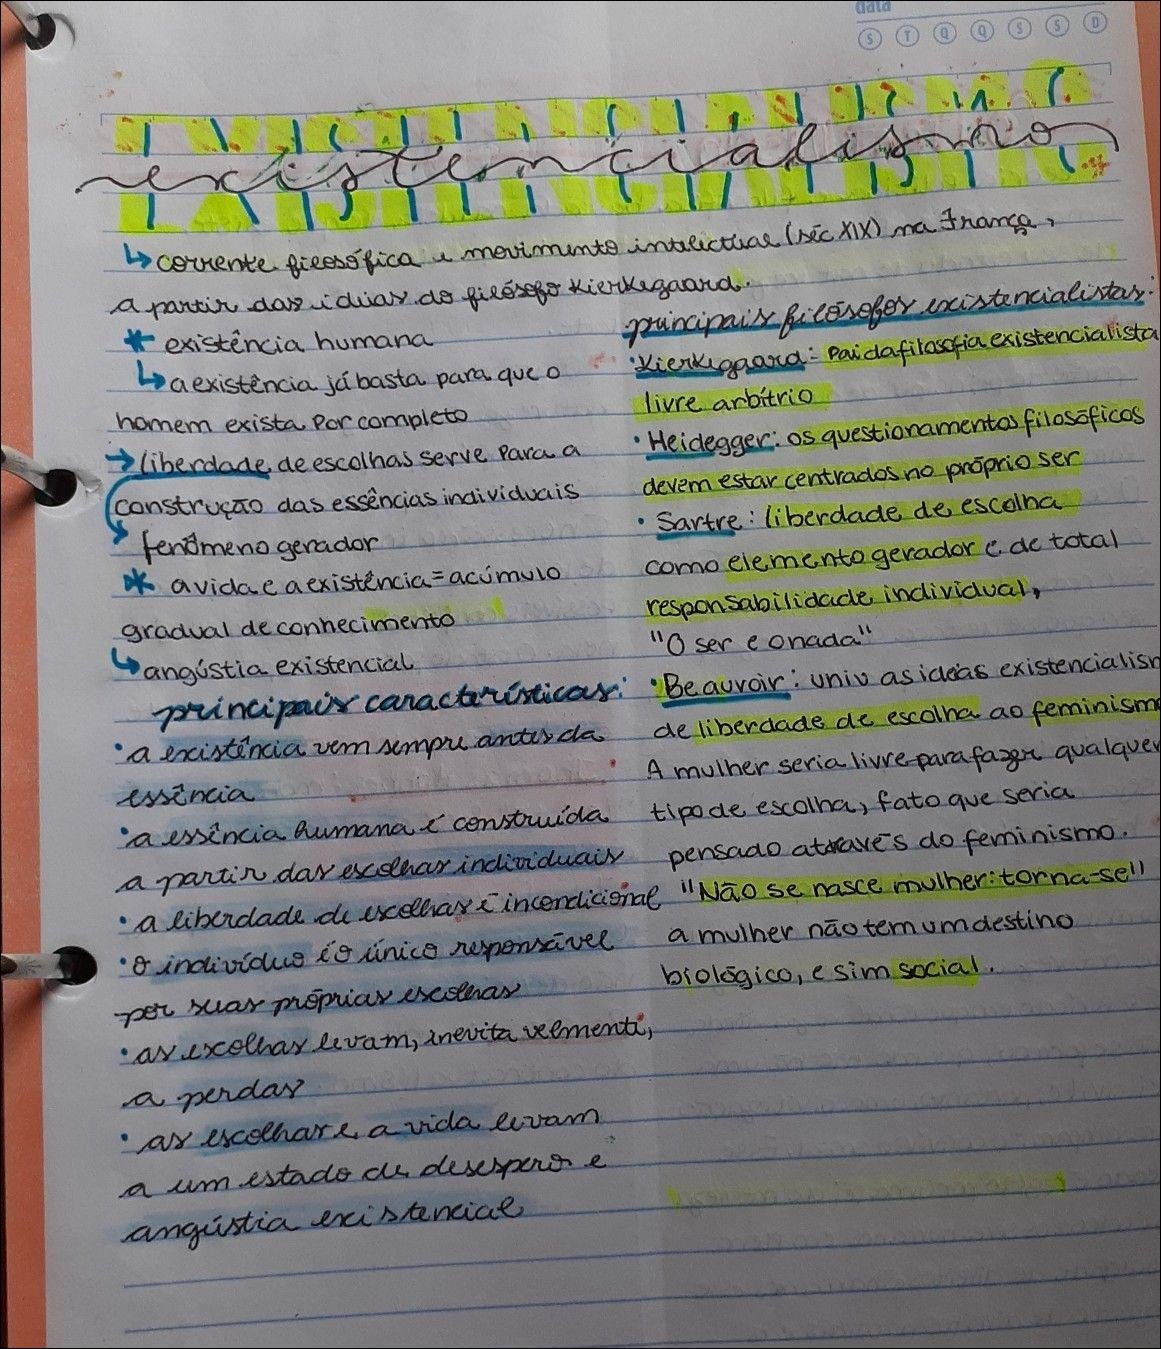 data
S T Q Q S S D
EXISTENCIALISMO
existencialismo
↳ corrente filosófica e movimento intelectual (séc XIX) na França,
a partir das ideias do filósofo Kierkegaard.
* existência humana
↳ a existência já basta para que o
homem exista por completo
→ liberdade de escolhas serve para a
construção das essências individuais
fenômeno gerador
* a vida e a existência = acúmulo
gradual de conhecimento
↳ angústia existencial
principais características:
• a existência vem sempre antes da
essência
• a essência humana é construída
a partir das escolhas individuais
• a liberdade de escolhas é incondicional
• o indivíduo é o único responsável
por suas próprias escolhas
• as escolhas levam, inevitavelmente,
a perdas
• as escolhas e a vida levam
a um estado de desespero e
angústia existencial
principais filósofos existencialistas:
• Kierkegaard: Pai da filosofia existencialista
livre arbítrio
• Heidegger: os questionamentos filosóficos
devem estar centrados no próprio ser
• Sartre: liberdade de escolha
como elemento gerador e de total
responsabilidade individual,
"O ser e o nada"
• Beauvoir: univ as ideias existencialism
de liberdade de escolha ao feminismo
A mulher seria livre para fazer qualquer
tipo de escolha, fato que seria
pensado através do feminismo.
"Não se nasce mulher: torna-se"
a mulher não tem um destino
biológico, e sim social.